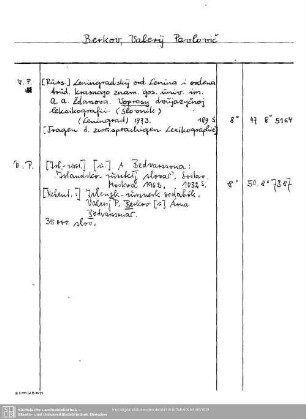 Berkov, Valerij Pavlovič
V. P. [Russ.] Leningradskij ord. Lenina i ordena
trud. krasnogo znam. gos. univ. im.
A. A. Ždanova. Voprosy dvujazyčnoj
leksikografii (Slovnik)
(Leningrad) 1973. 189 S. 8° 47 8° 5164
[Fragen d. zweisprachigen Lexikographie]
V. P. A. Bedvarsona:
Islandsko-russkij slovar'.
Moskva 1962. 1032 S. 8° 50. 8° 7387
Islenzk-rússnesk orðabók.
Valerij P. Berkov Arna
Bödvarssonar.
35 000 slov.